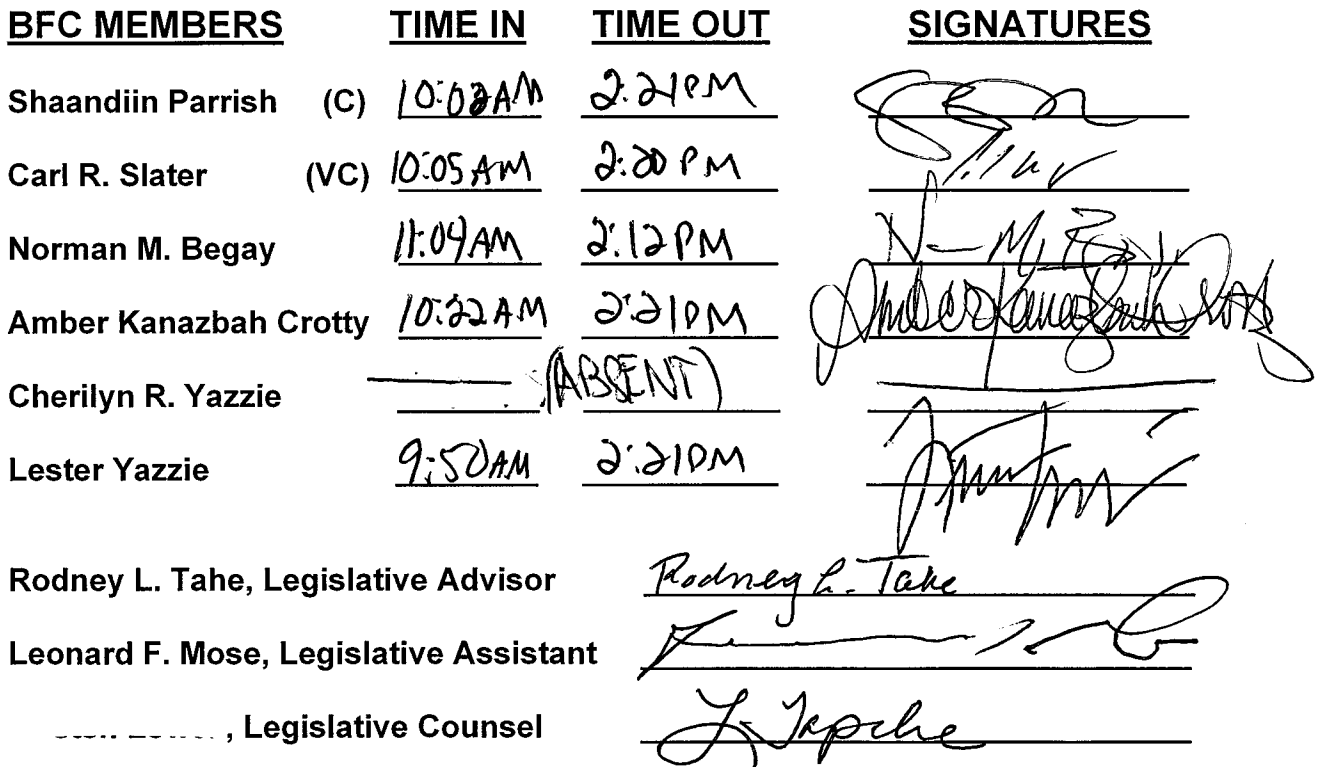 BFC MEMBERS TIME IN TIME OUT SIGNATURES
Shaandiin Parrish (C) 10:02AM 2:21PM
Carl R. Slater (VC) 10:05 AM 2:20 PM
Norman M. Begay 11:04AM 2:12PM
Amber Kanazbah Crotty 10:22AM 2:21PM Amber Kanazbah Crotty
Cherilyn R. Yazzie (ABSENT)
Lester Yazzie 9:50AM 2:21PM
Rodney L. Tahe, Legislative Advisor Rodney L. Tahe
Leonard F. Mose, Legislative Assistant
, Legislative Counsel